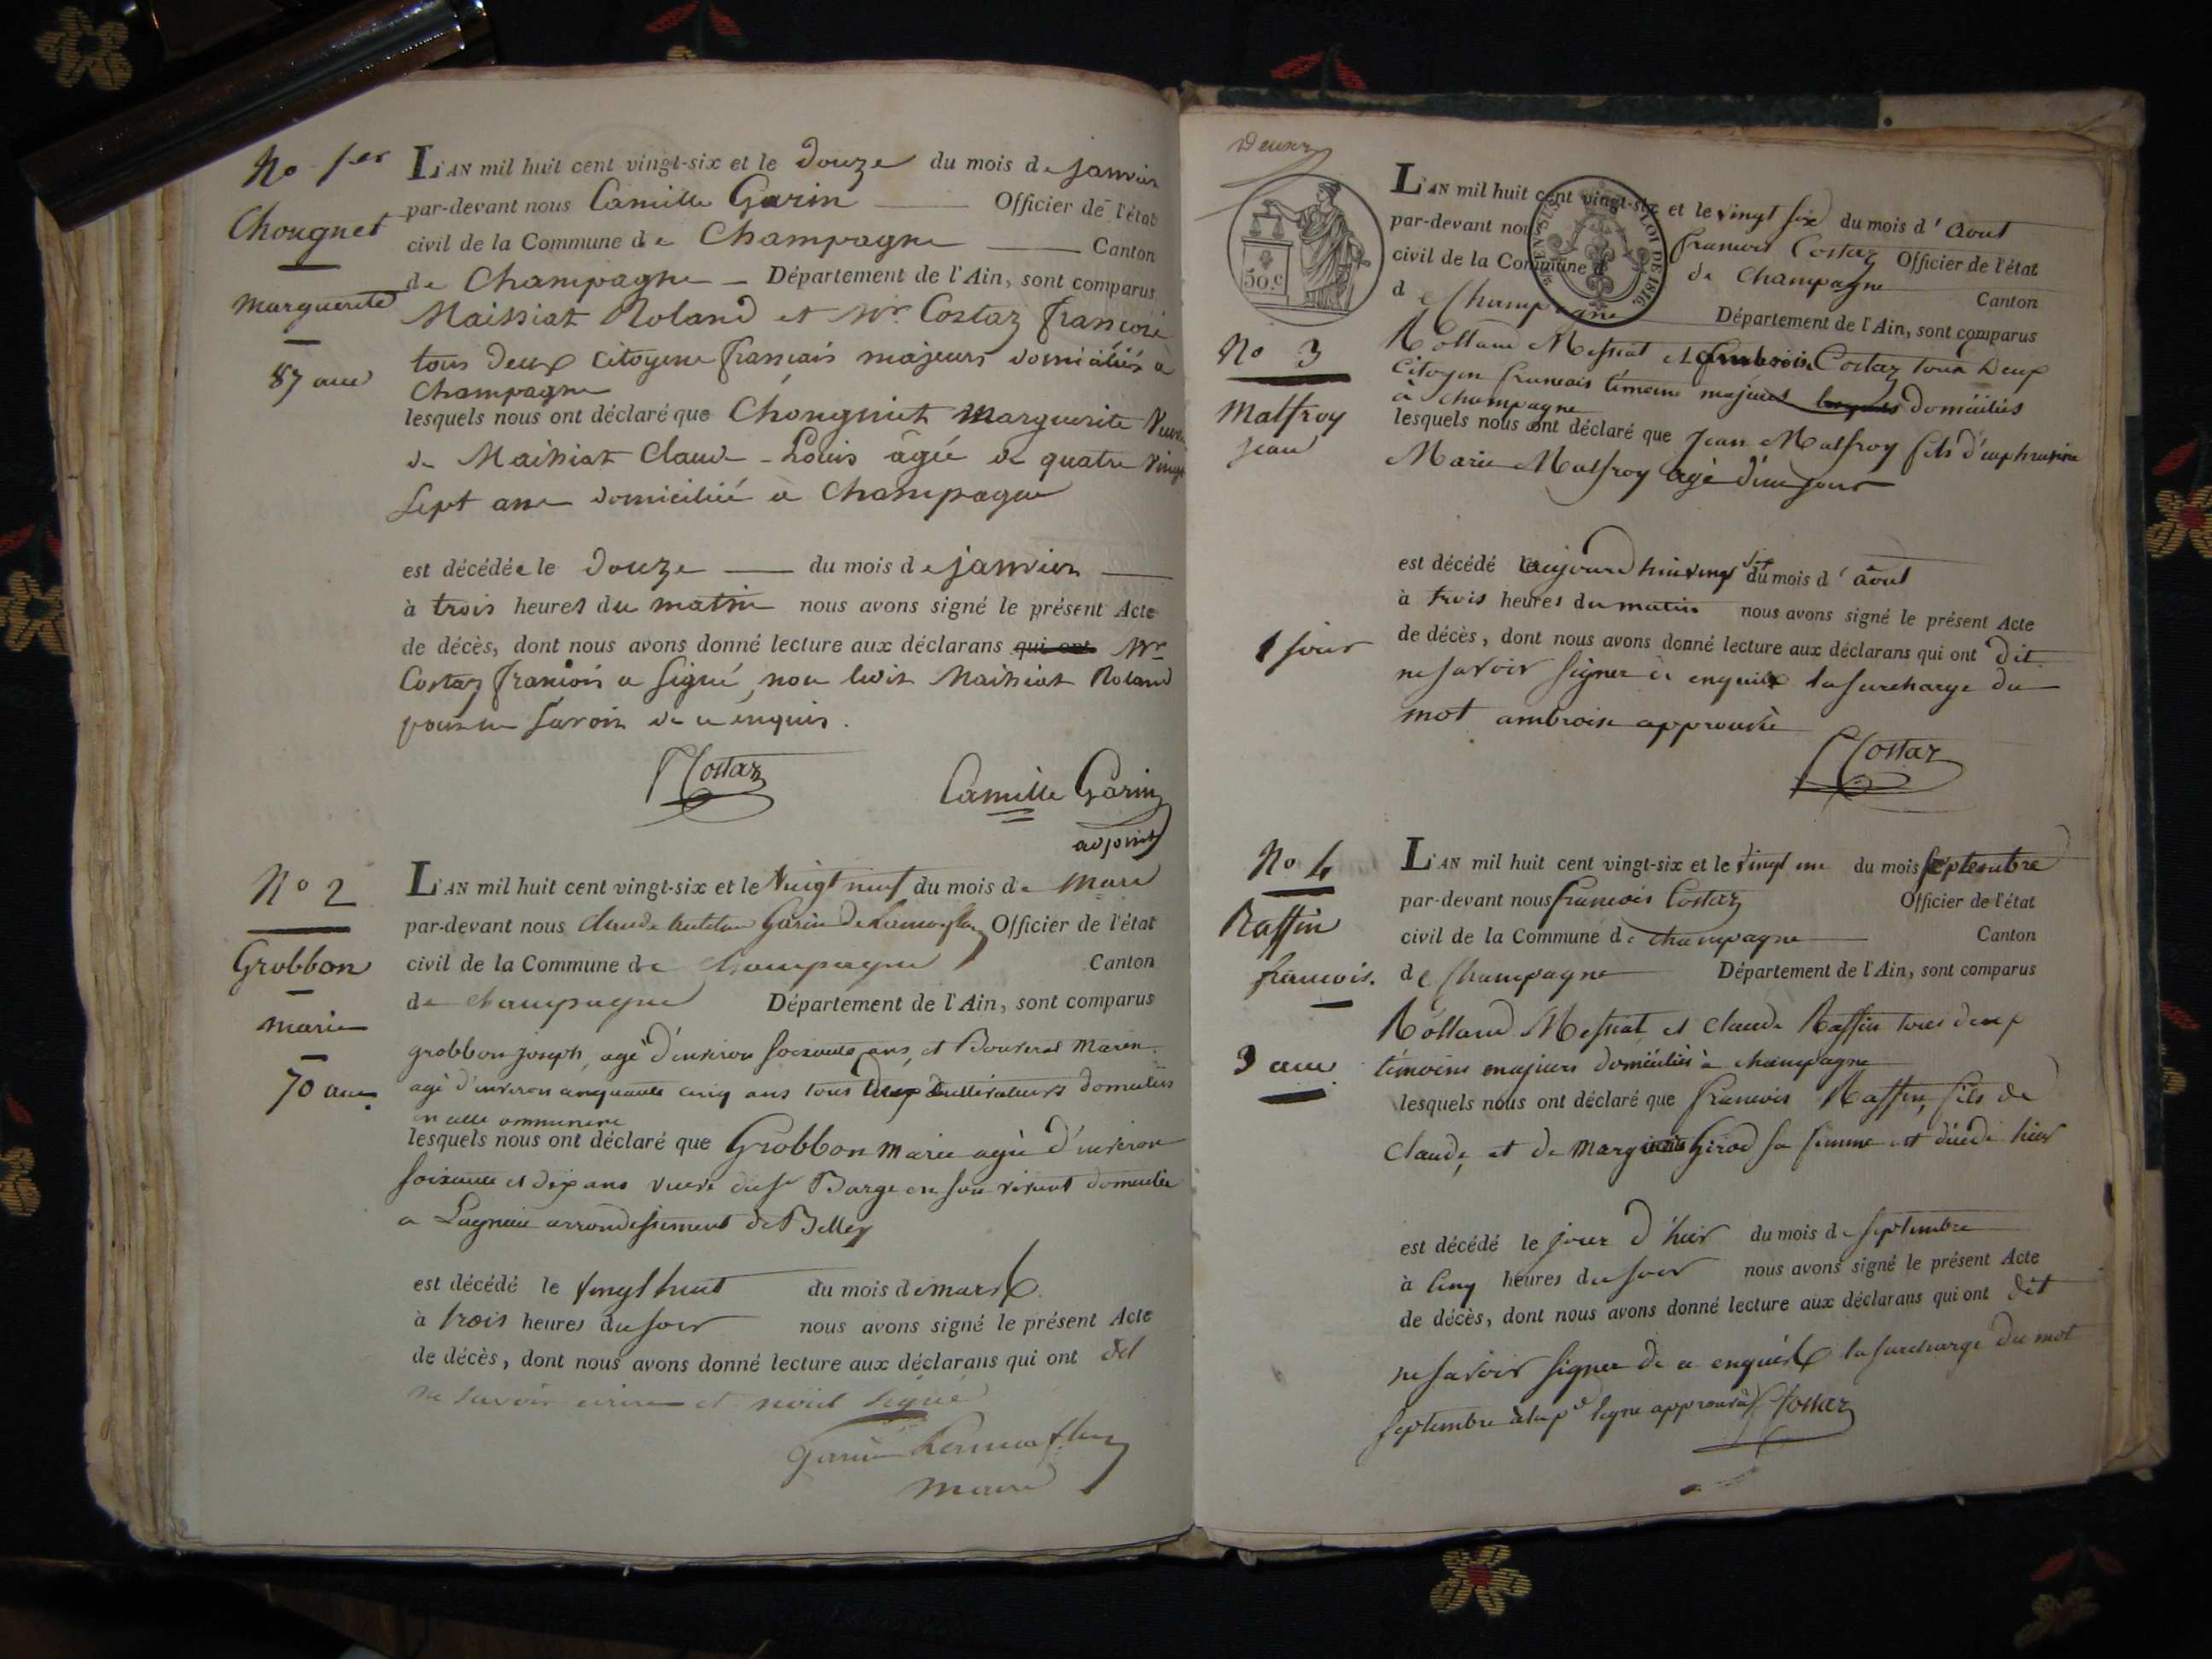 No 1er
Chougnet
Marguerite
87 ans
L'AN mil huit cent vingt-six et le Douze du mois de janvier
par-devant nous Camille Garin Officier de l'état
civil de la Commune de Champagne Canton
de Champagne Département de l'Ain, sont comparus
Maissiat Roland et Mr. Costaz François
tous deux citoyens français majeurs domiciliés à
Champagne
lesquels nous ont déclaré que Chougniet Marguerite Veuve
de Maissiat Claude-Louis âgée de quatre vingt
sept ans domiciliée à Champagne
est décédée le Douze du mois de janvier
à trois heures du matin nous avons signé le présent Acte
de décès, dont nous avons donné lecture aux déclarans qui ont Mr
Costaz François a signé, non ledit Maissiat Roland
pour ne savoir de ce enquis.
Costaz
Camille Garin
adjoint
No 2
Grobbon
Marie
70 ans
L'AN mil huit cent vingt-six et le Vingt neuf du mois de Mars
par-devant nous Claude Garin De Officier de l'état
civil de la Commune de Champagne Canton
de Champagne Département de l'Ain, sont comparus
grobbon joseph, agé d'environ soixante ans, et Bouverat Marin
agé d'environ cinquante cinq ans tous deux Cultivateurs domiciliés
en cette commune
lesquels nous ont déclaré que Grobbon Marie agée d'environ
soixante et dix ans veuve Barge en son vivant domiciliée
a Lagnieu arrondissement de Belley
est décédé le vingt huit du mois de mars
à trois heures du soir nous avons signé le présent Acte
de décès, dont nous avons donné lecture aux déclarans qui ont dit
ne savoir écrire et signé
Garin
Maire
Deux
50.c
LOI DE 1816.
No 3
Malfroy
Jean
1 jour
L'AN mil huit cent vingt-six et le vingt six du mois d'Aout
par-devant nous francois Costaz Officier de l'état
civil de la Commune de Champagne Canton
de Champagne Département de l'Ain, sont comparus
Rolland Messiat et Ambroise Costaz tous Deux
Citoyen francais témoins majeurs domiciliés
à Champagne
lesquels nous ont déclaré que Jean Malfroy fils d'euphrasine
Marie Malfroy agé d'un jour
est décédé aujourd'hui vingt six du mois d'aout
à trois heures du matin nous avons signé le présent Acte
de décès, dont nous avons donné lecture aux déclarans qui ont dit
ne savoir signer de ce enquis la surcharge du
mot ambroise approuvée
Costaz
No 4
Raffin
francois.
3 ans
L'AN mil huit cent vingt-six et le vingt un du mois Septembre
par-devant nous francois Costaz Officier de l'état
civil de la Commune de Champagne Canton
de Champagne Département de l'Ain, sont comparus
Rolland Messiat et Claude Raffin tous deux
témoins majeurs domiciliés à Champagne
lesquels nous ont déclaré que francois Raffin, fils de
Claude, et de Marguerite Girod sa femme est décédé hier
est décédé le jour d'hier du mois de septembre
à cinq heures du soir nous avons signé le présent Acte
de décès, dont nous avons donné lecture aux déclarans qui ont dit
ne savoir signer de ce enquis la surcharge du mot
septembre à la pre ligne approuvée Costaz